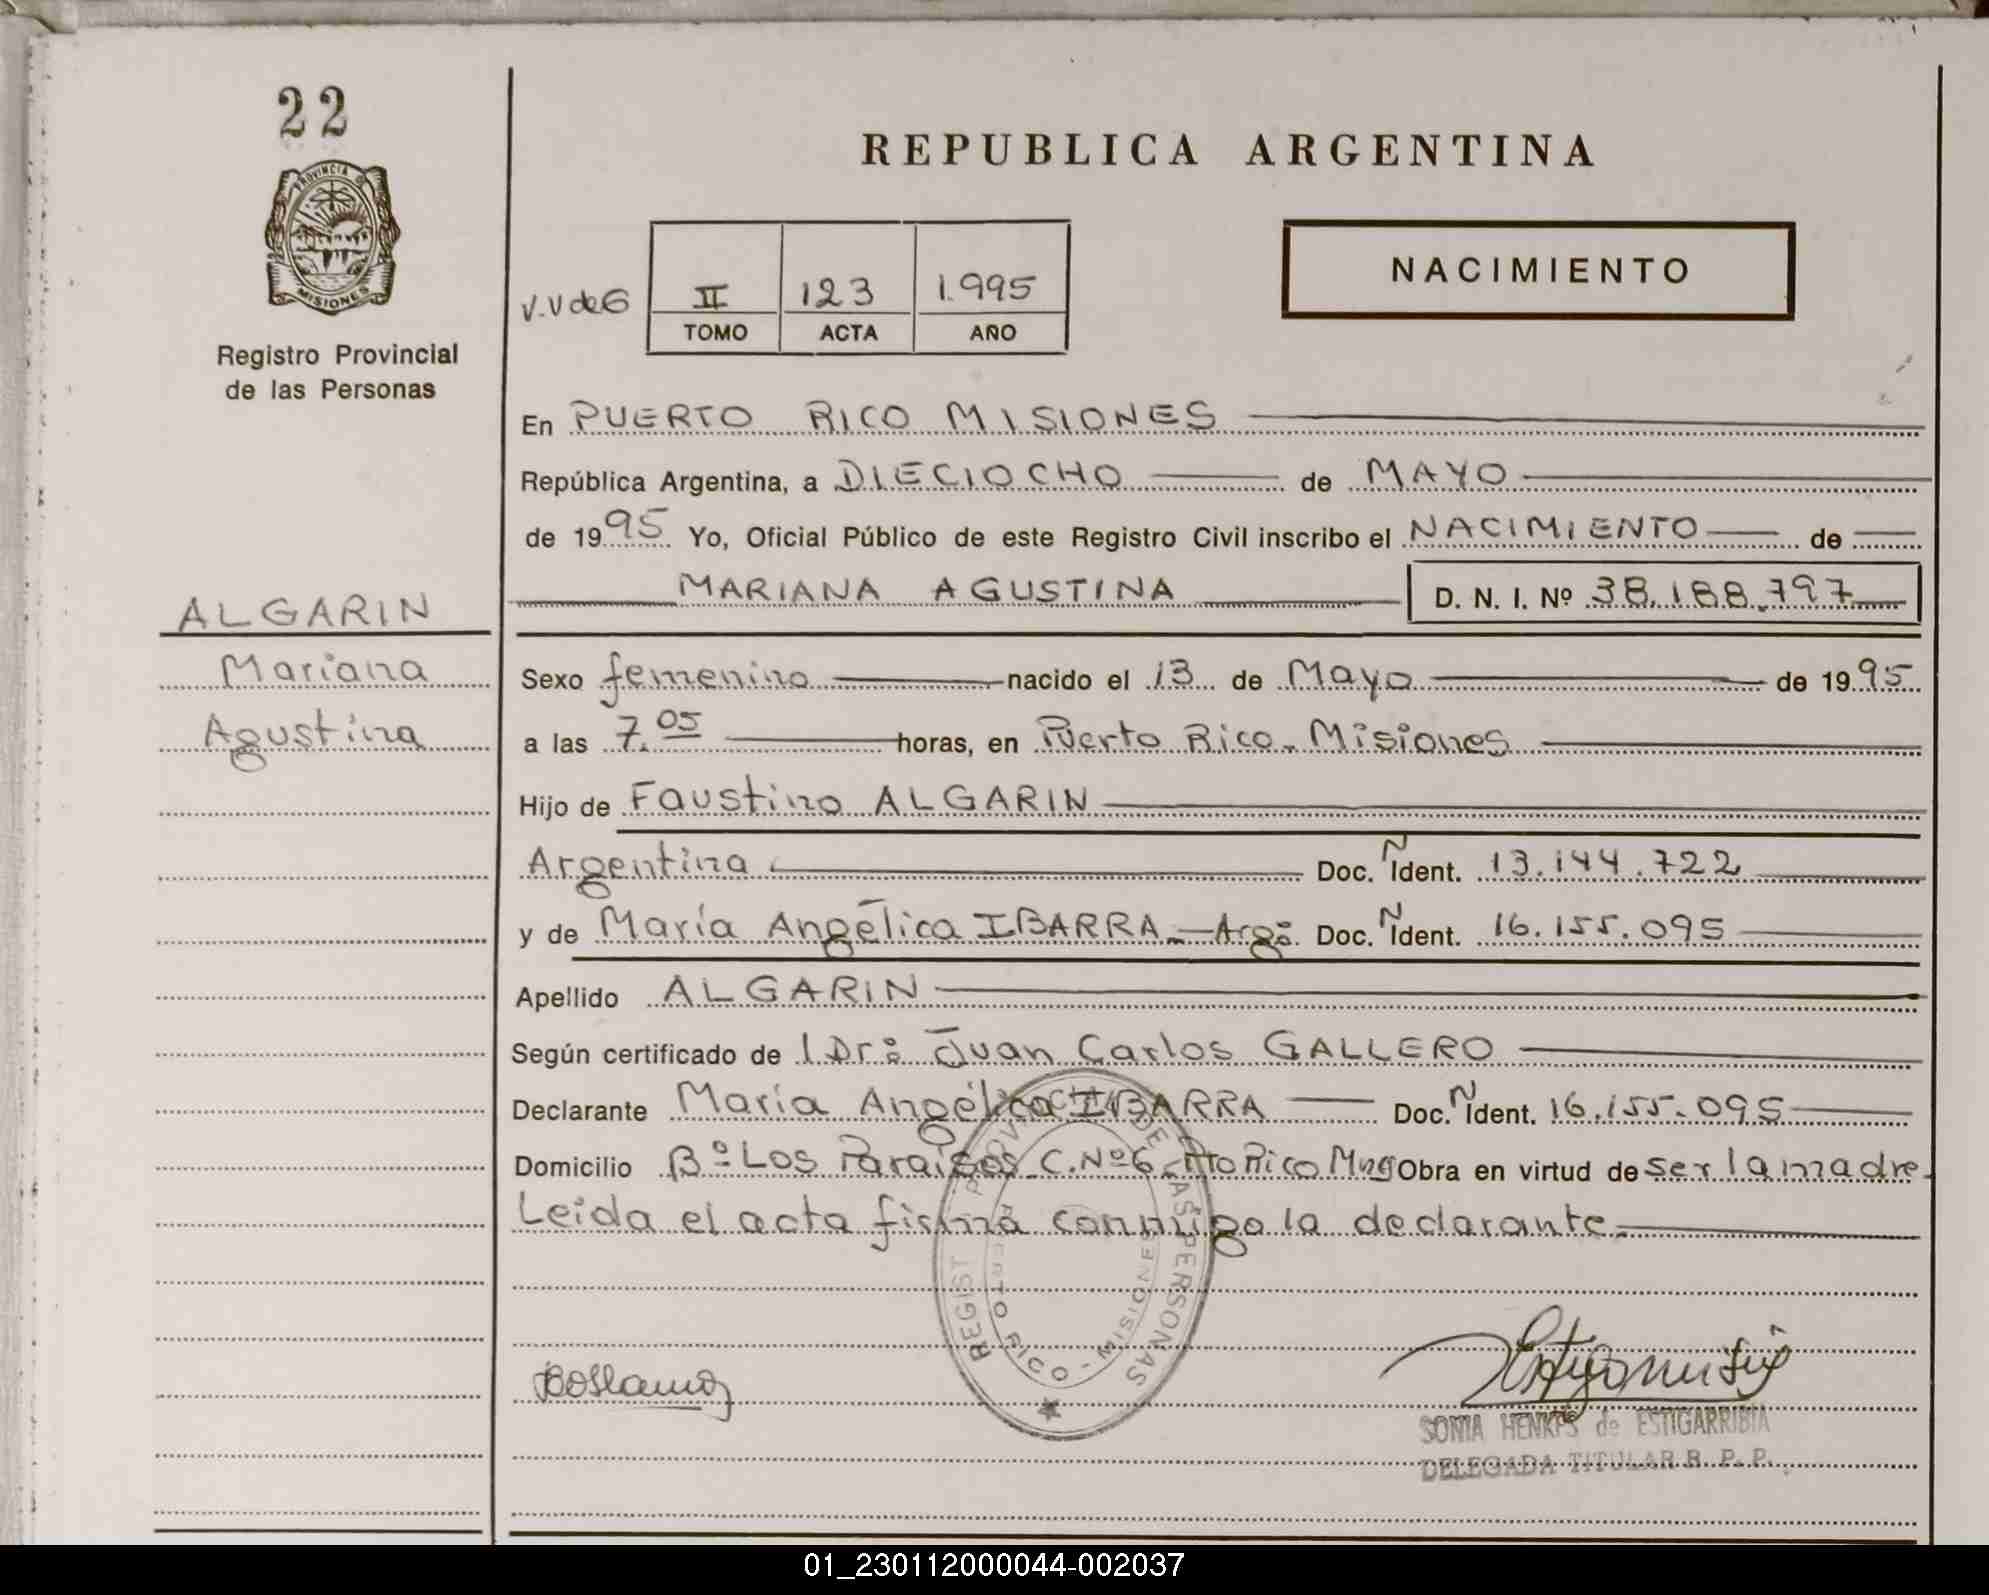 22
PROVINCIA DE
MISIONES
Registro Provincial
de las Personas
REPUBLICA ARGENTINA
NACIMIENTO
II 123 1.995
TOMO ACTA AÑO
En PUERTO RICO MISIONES
República Argentina, a DIECIOCHO de MAYO
de 1995 Yo, Oficial Público de este Registro Civil inscribo el NACIMIENTO de
MARIANA AGUSTINA D. N. I. Nº 38.188.797
ALGARIN
Mariana
Agustina
Sexo femenino nacido el 13 de Mayo de 1995
a las 7.05 horas, en Puerto Rico. Misiones
Hijo de Faustino ALGARIN
Argentina Doc. N Ident. 13.144.722
y de María Angélica IBARRA.- Arg. Doc. N Ident. 16.155.095
Apellido ALGARIN
Según certificado de Dr: Juan Carlos GALLERO
Declarante María Angélica IBARRA Doc. N Ident. 16.155.095
Domicilio Bº Los Paraísos C. Nº 6 Pto Rico Mnes Obra en virtud de ser la madre.
Leída el acta firma conmigo la declarante.
PUERTO RICO - MISIONES
SONIA HENKES de ESTIGARRIBIA
DELEGADA TITULAR R. P. P.
01_230112000044-002037